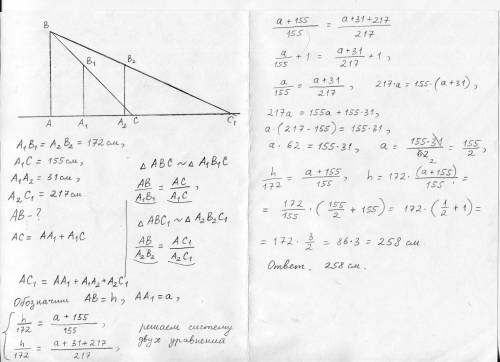 B
B₁
B₂
A
A₁
A₂
C
C₁
A₁B₁ = A₂B₂ = 172 см,
A₁C = 155 см,
A₁A₂ = 31 см,
A₂C₁ = 217 см
AB - ?
AC = AA₁ + A₁C
△ ABC ~ △ A₁B₁C
AB/A₁B₁ = AC/A₁C,
△ ABC₁ ~ △ A₂B₂C₁
AB/A₂B₂ = AC₁/A₂C₁
AC₁ = AA₁ + A₁A₂ + A₂C₁
Обозначим AB = h, AA₁ = a,
{ h/172 = (a + 155)/155,
h/172 = (a + 31 + 217)/217
решаем систему
двух уравнений
(a + 155)/155 = (a + 31 + 217)/217
a/155 + 1 = (a + 31)/217 + 1,
a/155 = (a + 31)/217, 217·a = 155·(a + 31),
217a = 155a + 155·31,
a·(217 - 155) = 155·31,
a·62 = 155·31, a = 155·31/62 2 = 155/2,
h/172 = (a + 155)/155, h = 172·(a + 155)/155 =
= 172/155 · (155/2 + 155) = 172·(1/2 + 1) =
= 172 · 3/2 = 86·3 = 258 см
Ответ. 258 см.